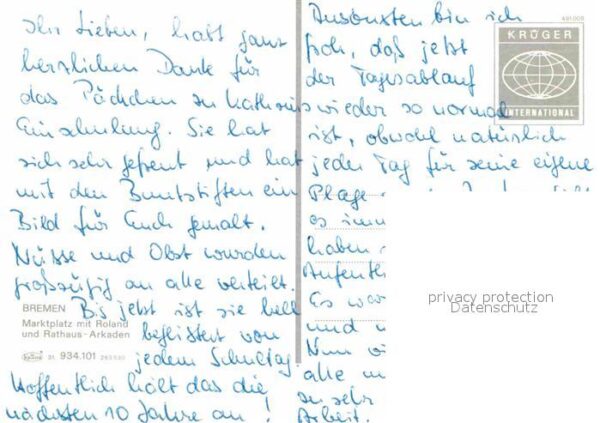 Ihr Lieben, habt ganz
herzlichen Dank für
das Päckchen zu Katharins
Einschulung. Sie hat
sich sehr gefreut und hat
mit den Buntstiften ein
Bild für Euch gemalt.
Nüsse und Obst wurden
großzügig an alle verteilt.
Bis jetzt ist sie hell
begeistert von
jedem Schultag.
Hoffentlich hält das die
nächsten 10 Jahre an!
BREMEN
Marktplatz mit Roland
und Rathaus-Arkaden
krüger 31 934.101
Ansonsten bin ich
froh, daß jetzt
der Tagesablauf
wieder so normal
ist, obwohl natürlich
jeder Tag für seine eigene
Plage
es
haben
Es war
und
Nun
alle
zu sehr
Arbeit.
KRÜGER
INTERNATIONAL
privacy protection
Datenschutz